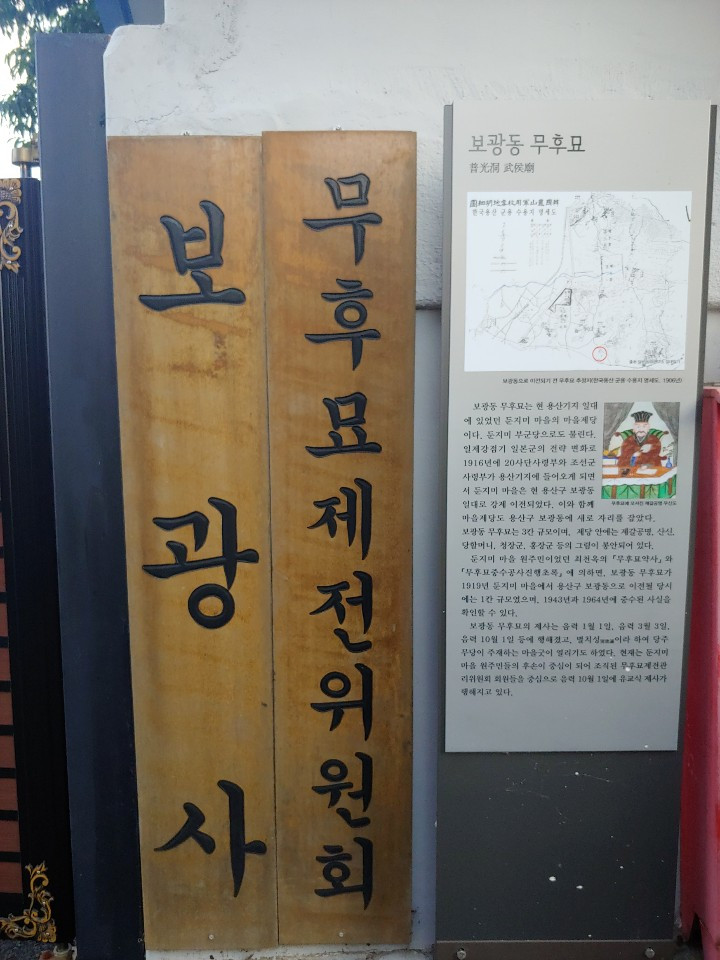 보광사
무후묘제전위원회
보광동 무후묘
普光洞 武侯廟
한국용산 군용 수용지 명세도
보광동으로 이전되기 전 무후묘 추정지(한국용산 군용 수용지 명세도, 1906년)
보광동 무후묘는 현 용산기지 일대
에 있었던 둔지미 마을의 마을제당
이다. 둔지미 부군당으로도 불린다.
일제강점기 일본군의 전략 변화로
1916년에 20사단사령부와 조선군
사령부가 용산기지에 들어오게 되면
서 둔지미 마을은 현 용산구 보광동
일대로 강제 이전되었다. 이와 함께
마을제당도 용산구 보광동에 새로 자리를 잡았다.
보광동 무후묘는 3칸 규모이며, 제당 안에는 제갈공명, 산신,
당할머니, 정장군, 홍장군 등의 그림이 봉안되어 있다.
둔지미 마을 원주민이었던 최전옥의 『무후묘약사』와
『무후묘중수공사진행초록』에 의하면, 보광동 무후묘가
1919년 둔지미 마을에서 용산구 보광동으로 이전될 당시
에는 1칸 규모였으며, 1943년과 1964년에 중수된 사실을
확인할 수 있다.
보광동 무후묘의 제사는 음력 1월 1일, 음력 3월 3일,
음력 10월 1일 등에 행해졌고, 별치성이라 하여 당주
무당이 주재하는 마을굿이 열리기도 하였다. 현재는 둔지미
마을 원주민들의 후손이 중심이 되어 조직된 무후묘제전관
리위원회 회원들을 중심으로 음력 10월 1일에 유교식 제사가
행해지고 있다.